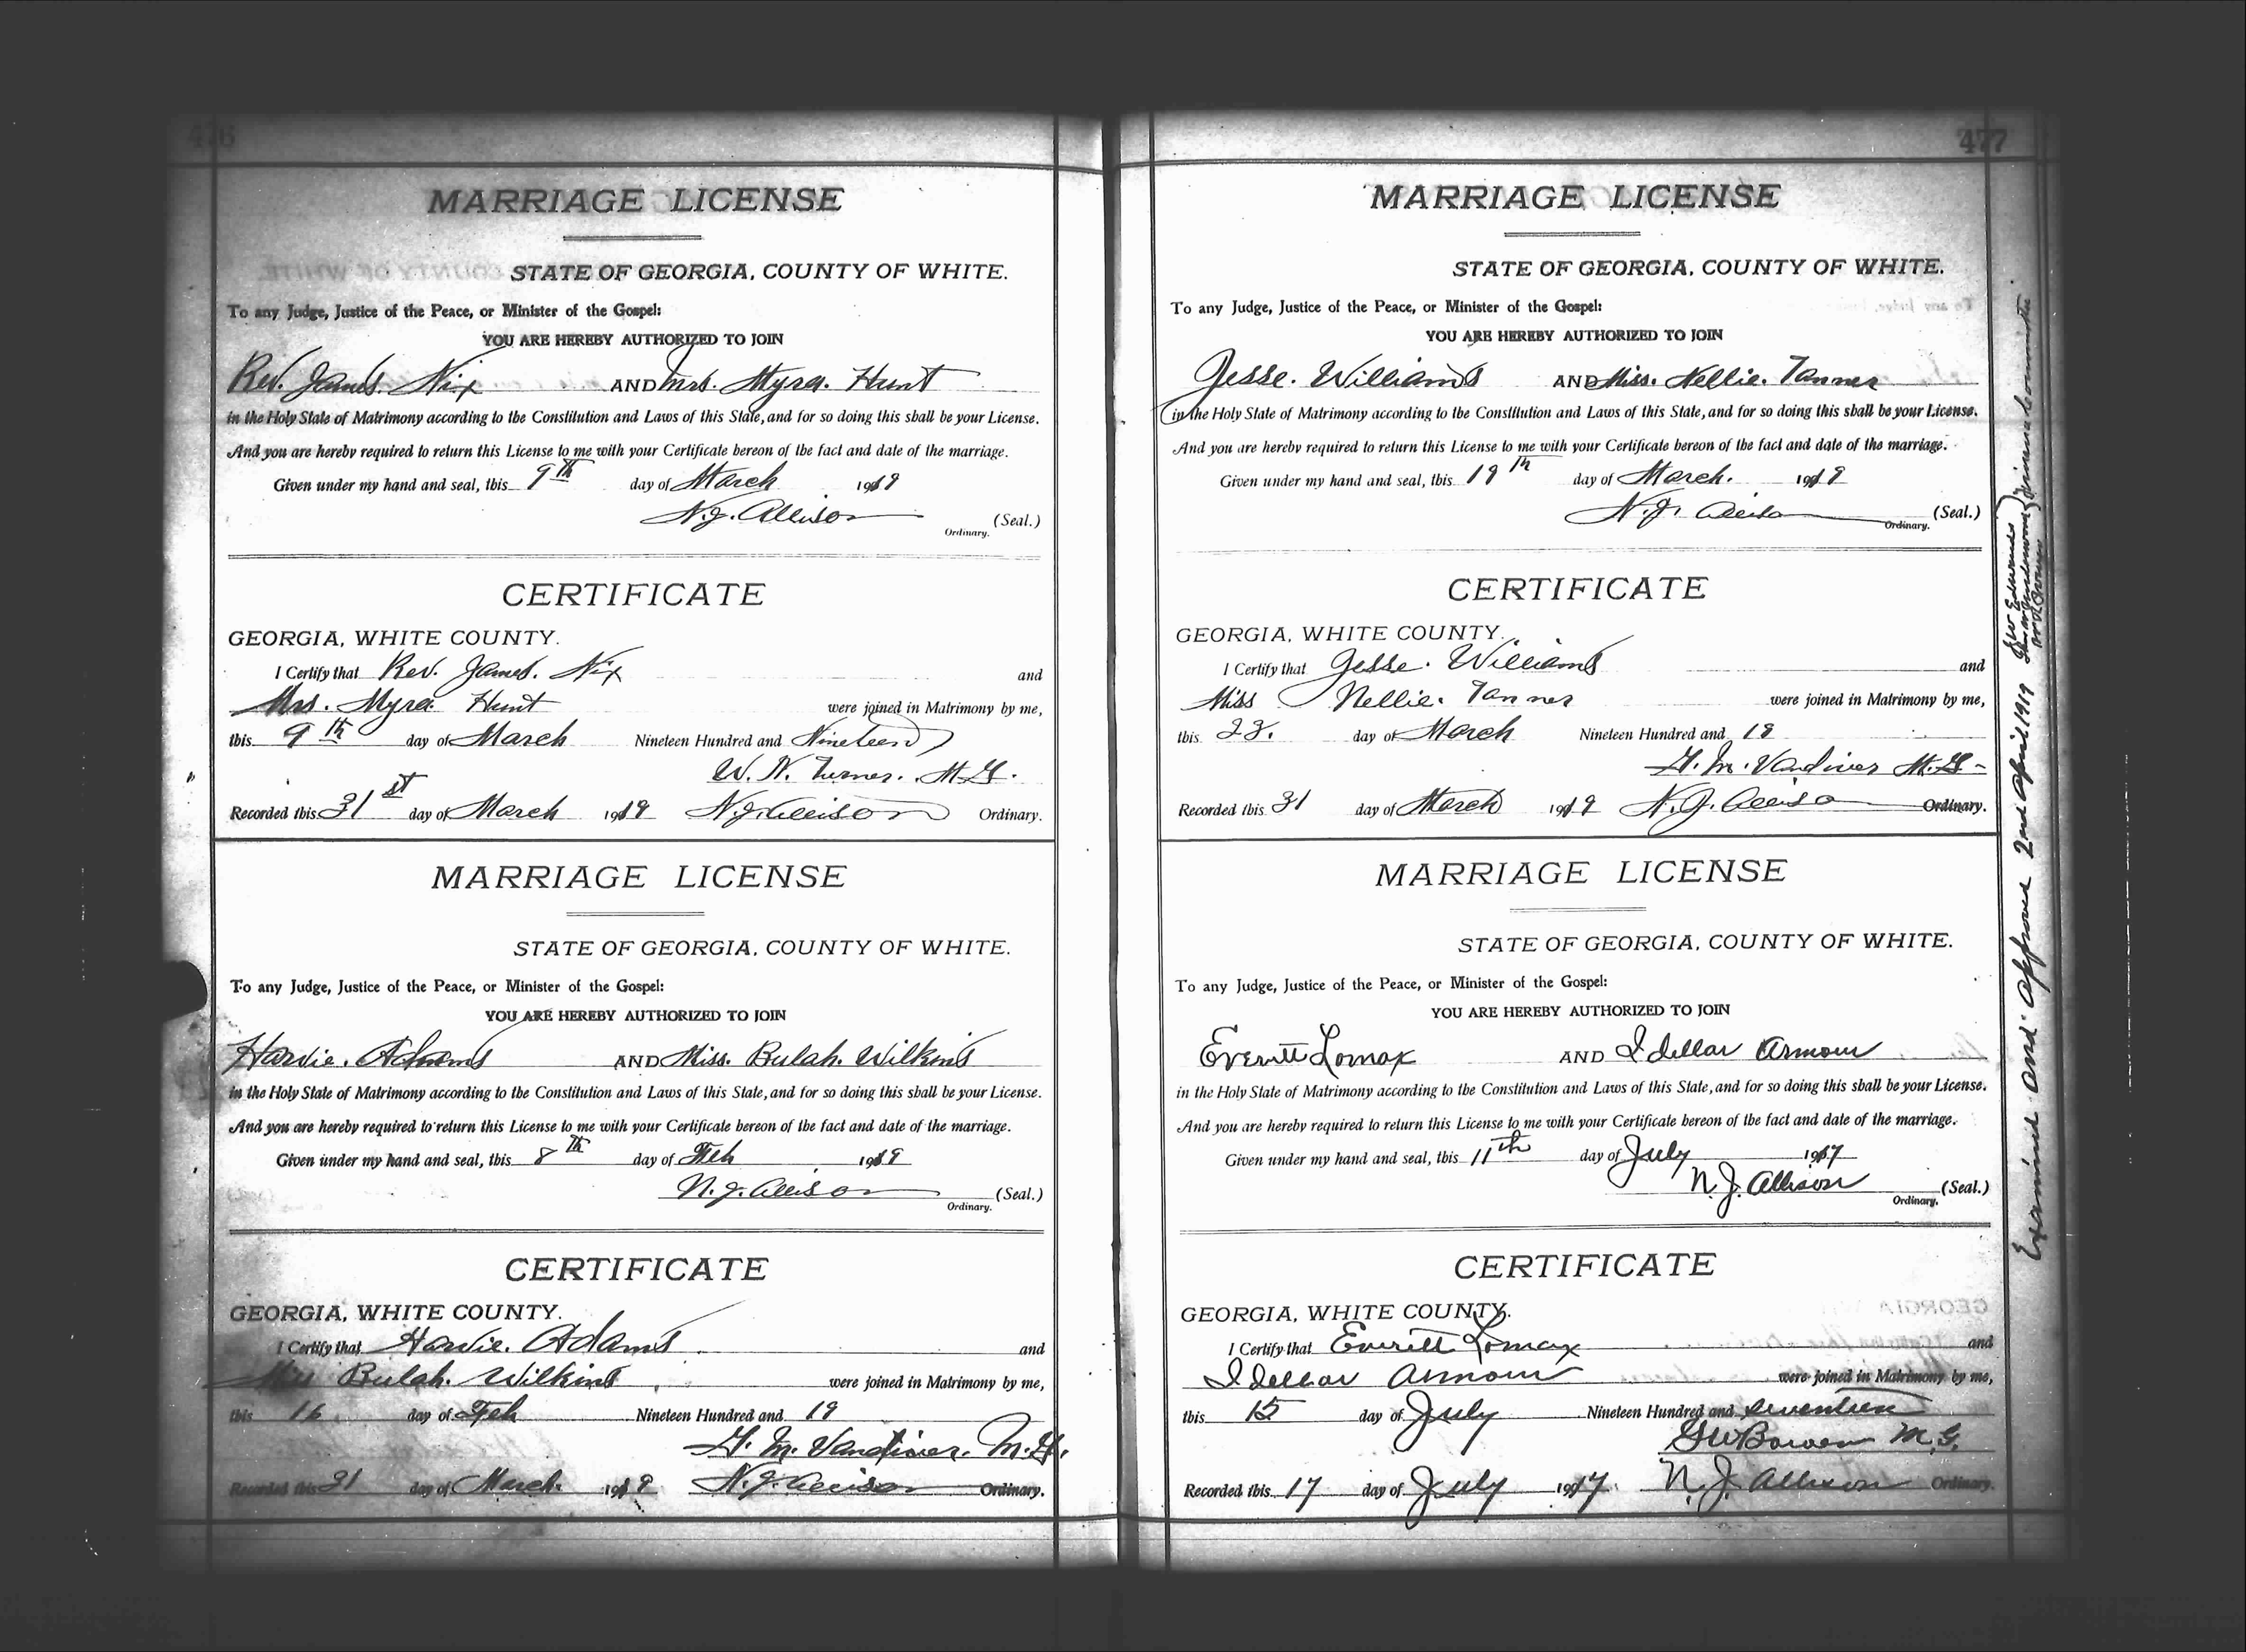 476
MARRIAGE LICENSE
STATE OF GEORGIA, COUNTY OF WHITE.
To any Judge, Justice of the Peace, or Minister of the Gospel:
YOU ARE HEREBY AUTHORIZED TO JOIN
Rev. James. Nix AND Mrs. Myra. Hunt
in the Holy State of Matrimony according to the Constitution and Laws of this State, and for so doing this shall be your License.
And you are hereby required to return this License to me with your Certificate hereon of the fact and date of the marriage.
Given under my hand and seal, this 9th day of March 1919
N. J. Allison (Seal.)
Ordinary.
CERTIFICATE
GEORGIA, WHITE COUNTY.
I Certify that Rev. James. Nix and
Mrs. Myra Hunt were joined in Matrimony by me,
this 9th day of March Nineteen Hundred and Nineteen
W. N. Turner. M.G.
Recorded this 31st day of March 1919 N. J. Allison Ordinary.
MARRIAGE LICENSE
STATE OF GEORGIA, COUNTY OF WHITE.
To any Judge, Justice of the Peace, or Minister of the Gospel:
YOU ARE HEREBY AUTHORIZED TO JOIN
Harvie. Adams AND Miss. Bulah. Wilkins
in the Holy State of Matrimony according to the Constitution and Laws of this State, and for so doing this shall be your License.
And you are hereby required to return this License to me with your Certificate hereon of the fact and date of the marriage.
Given under my hand and seal, this 8th day of Feb 1919
N. J. Allison (Seal.)
Ordinary.
CERTIFICATE
GEORGIA, WHITE COUNTY.
I Certify that Harvie. Adams and
Miss Bulah. Wilkins were joined in Matrimony by me,
this 16 day of Feb Nineteen Hundred and 19
G. M. Vandiver. M.G.
Recorded this 31 day of March. 1919 N. J. Allison Ordinary.
477
MARRIAGE LICENSE
STATE OF GEORGIA, COUNTY OF WHITE.
To any Judge, Justice of the Peace, or Minister of the Gospel:
YOU ARE HEREBY AUTHORIZED TO JOIN
Jesse. Williams AND Miss. Nellie. Tanner
in the Holy State of Matrimony according to the Constitution and Laws of this State, and for so doing this shall be your License.
And you are hereby required to return this License to me with your Certificate hereon of the fact and date of the marriage.
Given under my hand and seal, this 19th day of March. 1919
N. J. Allison (Seal.)
Ordinary.
CERTIFICATE
GEORGIA, WHITE COUNTY.
I Certify that Jesse. Williams and
Miss Nellie. Tanner were joined in Matrimony by me,
this 23. day of March Nineteen Hundred and 19
G. M. Vandiver M.G.
Recorded this 31 day of March 1919 N. J. Allison Ordinary.
MARRIAGE LICENSE
STATE OF GEORGIA, COUNTY OF WHITE.
To any Judge, Justice of the Peace, or Minister of the Gospel:
YOU ARE HEREBY AUTHORIZED TO JOIN
Everitt Lomax AND Idellar Armour
in the Holy State of Matrimony according to the Constitution and Laws of this State, and for so doing this shall be your License.
And you are hereby required to return this License to me with your Certificate hereon of the fact and date of the marriage.
Given under my hand and seal, this 11th day of July 1917
N. J. Allison (Seal.)
Ordinary.
CERTIFICATE
GEORGIA, WHITE COUNTY.
I Certify that Everitt Lomax and
Idellar Armour were joined in Matrimony by me,
this 15 day of July Nineteen Hundred and seventeen
G W Bowen M.G.
Recorded this 17 day of July 1917. N. J. Allison Ordinary.
Examined and approved 2nd April 1919